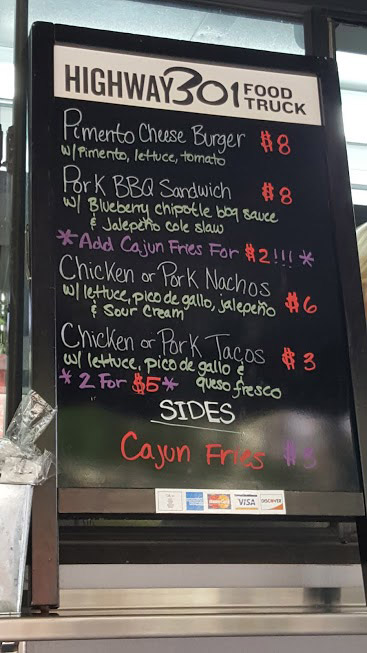 HIGHWAY 301 FOOD TRUCK
Pimento Cheese Burger $8
w/ Pimento, lettuce, tomato
Pork BBQ Sandwich $8
w/ Blueberry chipotle bbq sauce
& Jalepeño cole slaw
*Add Cajun Fries For $2!!! *
Chicken or Pork Nachos
w/ lettuce, pico de gallo, jalepeño $6
& Sour Cream
Chicken or Pork Tacos $3
w/ lettuce, pico de gallo &
* 2 For $5 * queso fresco
SIDES
Cajun Fries $3
VISA DISCOVER